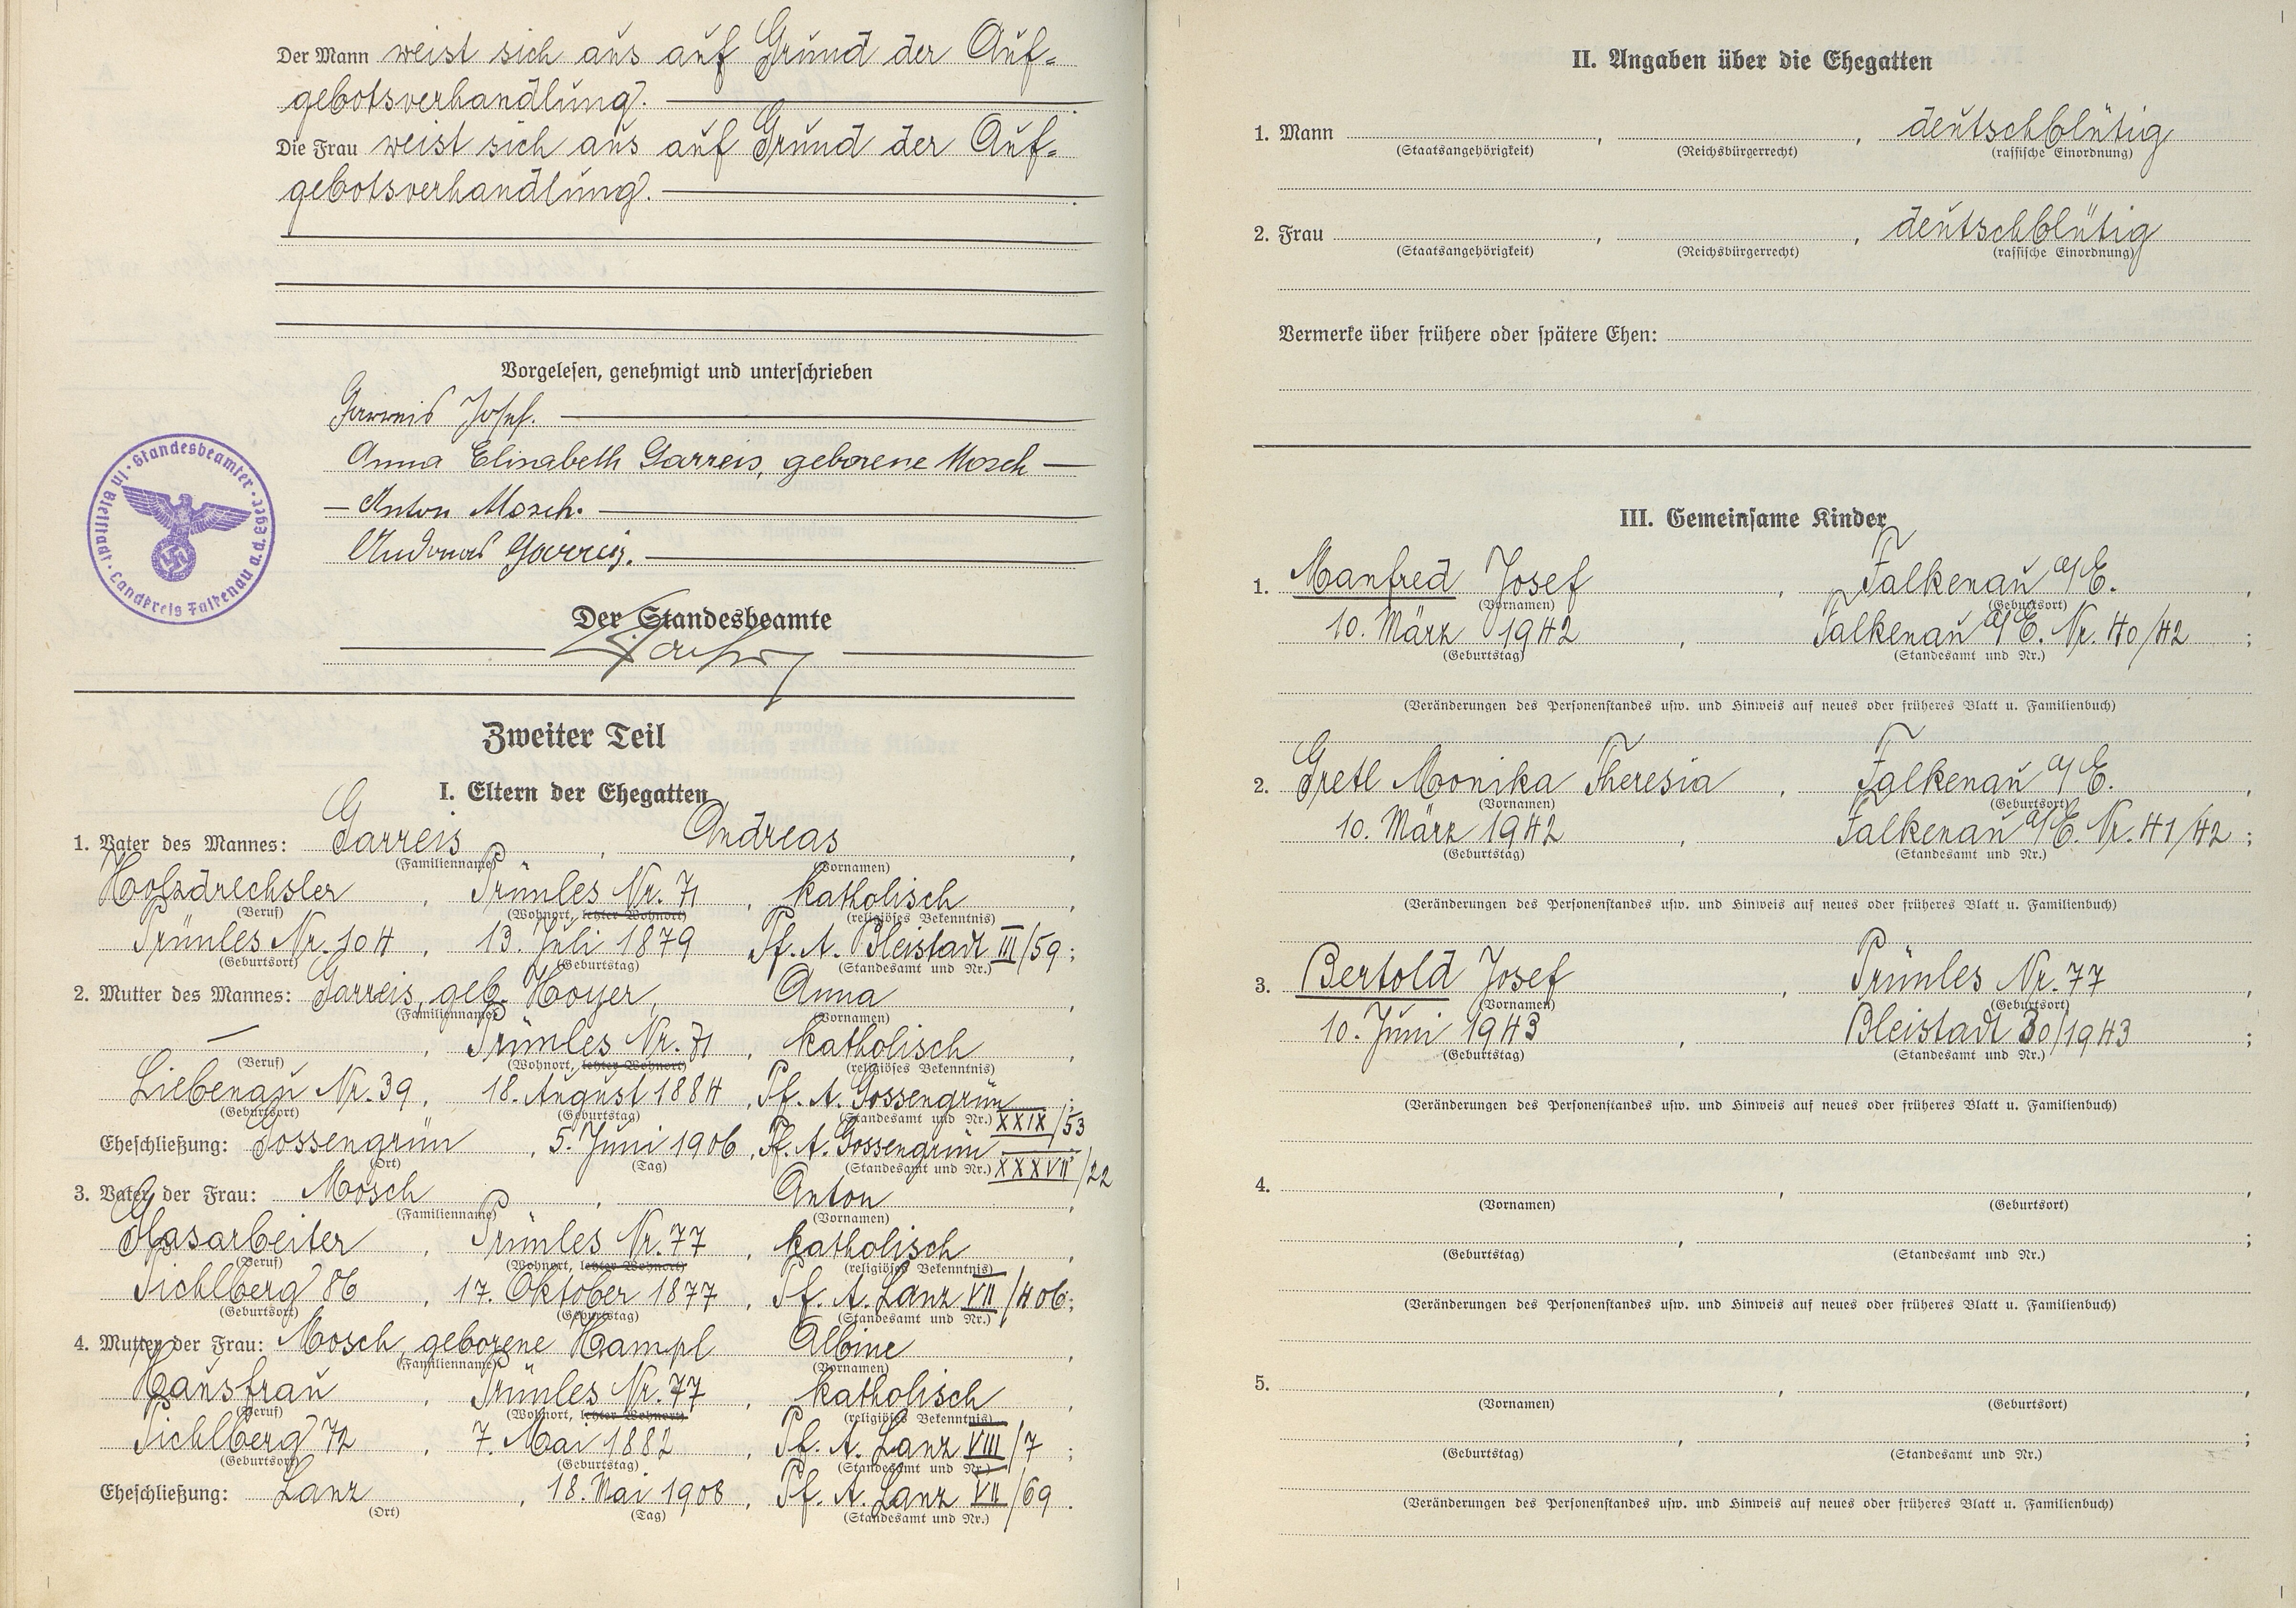 Der Mann weist sich aus auf Grund der Auf-
gebotsverhandlung.
Die Frau weist sich aus auf Grund der Auf-
gebotsverhandlung.
Vorgelesen, genehmigt und unterschrieben
Garreis Josef.
Anna Elisabeth Garreis, geborene Mosch
Anton Mosch.
Andreas Garreis.
Standesbeamter · in Bleistadt · Landkreis Falkenau a.d. Eger ·
Der Standesbeamte
Zweiter Teil
I. Eltern der Ehegatten
1. Vater des Mannes: Garreis, Andreas,
(Familienname) (Vornamen)
Holzdrechsler, Prünles Nr. 71, katholisch,
(Beruf) (Wohnort, letzter Wohnort) (religiöses Bekenntnis)
Prünles Nr. 104, 13. Juli 1879 Pf. A. Bleistadt III/59;
(Geburtsort) (Geburtstag) (Standesamt und Nr.)
2. Mutter des Mannes: Garreis, geb. Hoyer, Anna,
(Familienname) (Vornamen)
—, Prünles Nr. 71, katholisch,
(Beruf) (Wohnort, letzter Wohnort) (religiöses Bekenntnis)
Liebenau Nr. 39, 18. August 1884, Pf. A. Gossengrün;
(Geburtsort) (Geburtstag) (Standesamt und Nr.) XXIX/53
Eheschließung: Gossengrün, 5. Juni 1906, Pf. A. Gossengrün
(Ort) (Tag) (Standesamt und Nr.) XXXVII/22
3. Vater der Frau: Mosch, Anton,
(Familienname) (Vornamen)
Glasarbeiter, Prünles Nr. 77, katholisch,
(Beruf) (Wohnort, letzter Wohnort) (religiöses Bekenntnis)
Pichlberg 86, 17. Oktober 1877, Pf. A. Lanz VII/406;
(Geburtsort) (Geburtstag) (Standesamt und Nr.)
4. Mutter der Frau: Mosch, geborene Hampl Albine,
(Familienname) (Vornamen)
Hausfrau, Prünles Nr. 77, katholisch,
(Beruf) (Wohnort, letzter Wohnort) (religiöses Bekenntnis)
Pichlberg 72, 7. Mai 1882, Pf. A. Lanz VIII/7;
(Geburtsort) (Geburtstag) (Standesamt und Nr.)
Eheschließung: Lanz, 18. Mai 1908, Pf. A. Lanz VII/69.
(Ort) (Tag) (Standesamt und Nr.)
II. Angaben über die Ehegatten
1. Mann , , deutschblütig
(Staatsangehörigkeit) (Reichsbürgerrecht) (rassische Einordnung)
2. Frau , , deutschblütig
(Staatsangehörigkeit) (Reichsbürgerrecht) (rassische Einordnung)
Vermerke über frühere oder spätere Ehen:
III. Gemeinsame Kinder
1. Manfred Josef, Falkenau a/E.,
(Vornamen) (Geburtsort)
10. März 1942, Falkenau a/E. Nr. 40/42;
(Geburtstag) (Standesamt und Nr.)
(Veränderungen des Personenstandes usw. und Hinweis auf neues oder früheres Blatt u. Familienbuch)
2. Gretl Monika Theresia, Falkenau a/E.,
(Vornamen) (Geburtsort)
10. März 1942, Falkenau a/E. Nr. 41/42;
(Geburtstag) (Standesamt und Nr.)
(Veränderungen des Personenstandes usw. und Hinweis auf neues oder früheres Blatt u. Familienbuch)
3. Bertold Josef, Prünles Nr. 77,
(Vornamen) (Geburtsort)
10. Juni 1943, Bleistadt 30/1943;
(Geburtstag) (Standesamt und Nr.)
(Veränderungen des Personenstandes usw. und Hinweis auf neues oder früheres Blatt u. Familienbuch)
4. , ,
(Vornamen) (Geburtsort)
, ;
(Geburtstag) (Standesamt und Nr.)
(Veränderungen des Personenstandes usw. und Hinweis auf neues oder früheres Blatt u. Familienbuch)
5. , ,
(Vornamen) (Geburtsort)
, ;
(Geburtstag) (Standesamt und Nr.)
(Veränderungen des Personenstandes usw. und Hinweis auf neues oder früheres Blatt u. Familienbuch)